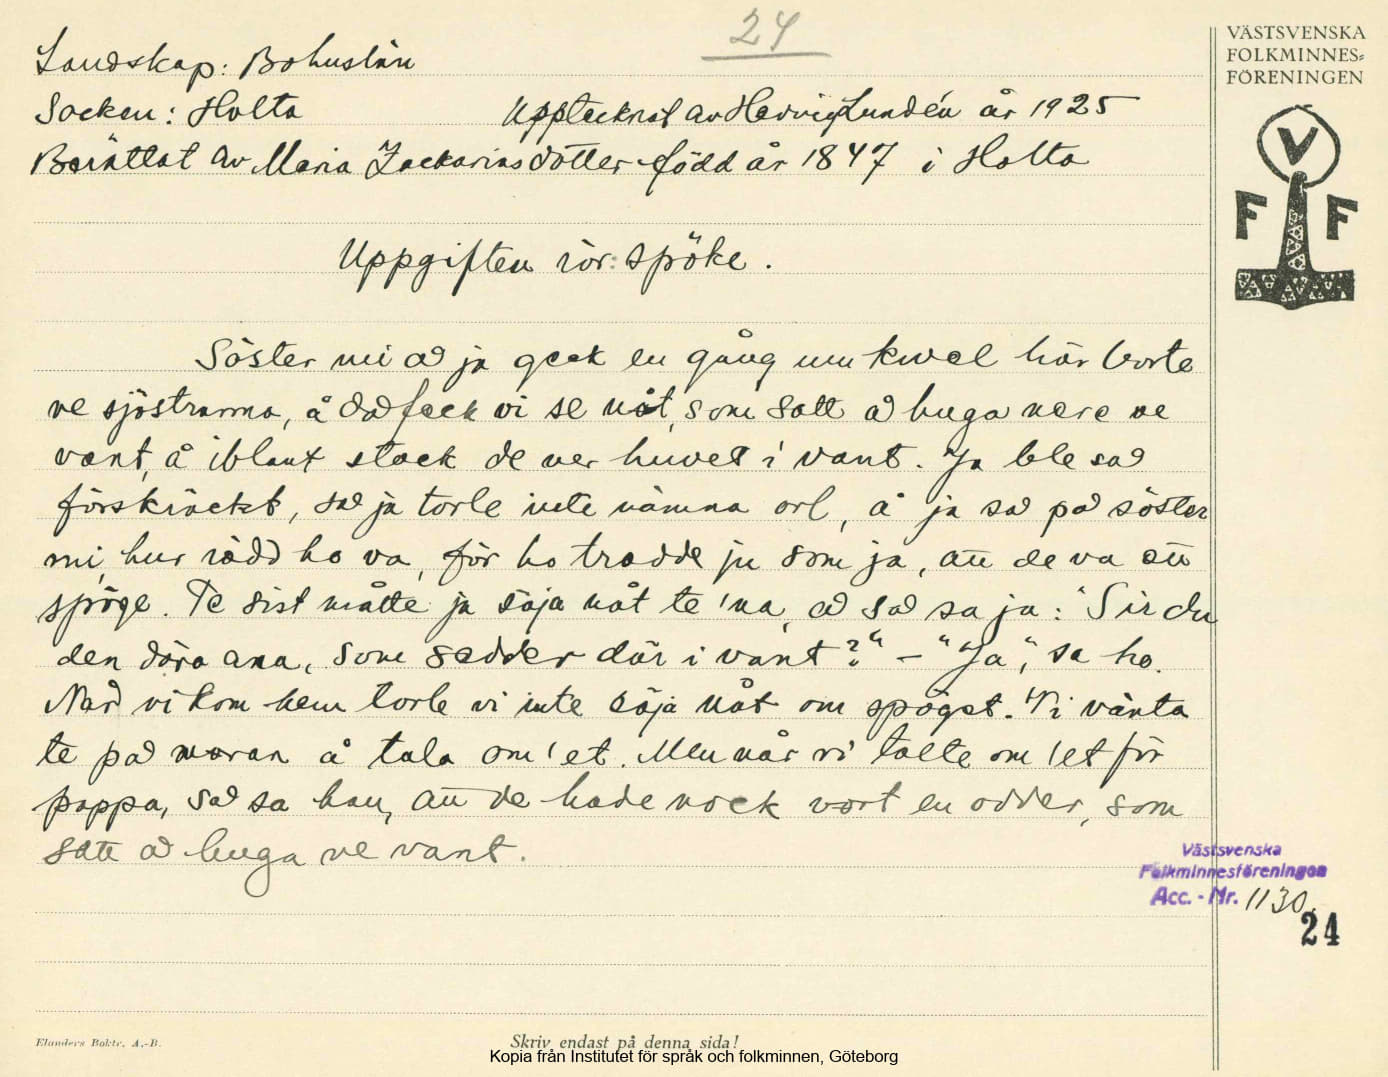 24
VÄSTSVENSKA
FOLKMINNES-
FÖRENINGEN
V
F F
Landskap: Bohuslän
Socken: Holta Upptecknat av Hedvig Lundén år 1925
Berättat av Maria Zackariasdotter född år 1847 i Holta
Uppgiften rör: spöke.
Söster mi å ja geck en gång um kwel här borte
ve sjöstranna, å då feck vi se nåt, som satt å huga nere ve
vant, å iblant stack de ner huvet i vant. Ja ble så
förskräckt, så ja torle inte nämna orl, å ja så på söster
mi, hur rädd ho va, för ho trodde ju som ja, att de va ett
spöge. Te sist måtte ja säja nåt te 'na, å så sa ja: "Sir du
den döra ana, som sedder där i vant?" – "Ja", sa ho.
När vi kom hem torle vi inte säja nåt om spöget. Vi vänta
te på moran å tala om 'et. Men når vi talte om 'et för
pappa, så sa han, att de hade nock vart en odder, som
satt å huga ve vant.
Västsvenska
Folkminnesföreningen
Acc. - Nr. 1130.
24
Elanders Boktr. A.-B.
Skriv endast på denna sida!
Kopia från Institutet för språk och folkminnen, Göteborg